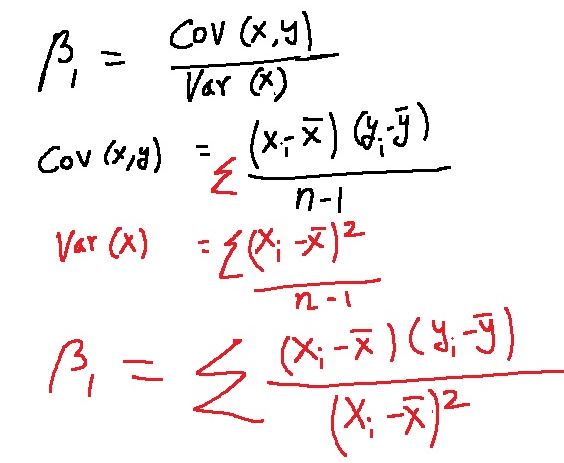 β₁ = Cov (x,y) / Var (x)
Cov (x,y) = Σ (xᵢ-x̄) (yᵢ-ȳ) / n-1
Var (x) = Σ(xᵢ-x̄)² / n-1
β₁ = Σ (xᵢ-x̄) (yᵢ-ȳ) / (xᵢ-x̄)²